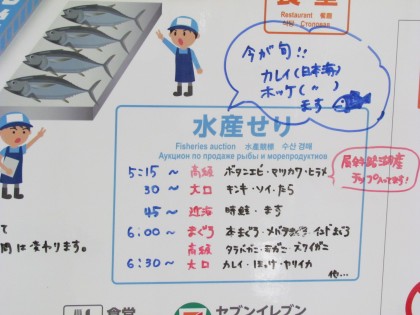 食堂
Restaurant 餐廳
식당 Столовая
今が旬!!
カレイ(日本海)
ホッケ( 〃 )
ます
水産せり
Fisheries auction 水產競標 수산 경매
Аукцион по продаже рыбы и морепродуктов
5:15～ 高級 ボタンエビ・マツカワ・ヒラメ
30～ 大口 キンキ・ソイ・たら
45～ 近海 時鮭・ます
6:00～ まぐろ 本まぐろ・メバチまぐろ・インドまぐろ
高級 タラバガニ・毛ガニ・ズワイガニ
6:30～ 大口 カレイ・ほっけ・ヤリイカ
他…
屈斜路湖産
チップ入ってます!
て
間は変わります。
食堂
セブンイレブン